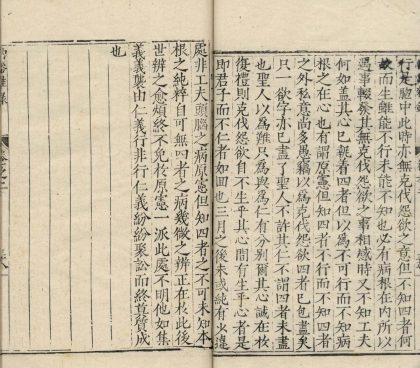 行是中此時亦無克伐怨欲之意但不知四者何
故而生雖能不行未能不知也必有病根在内所以
遇事輟發其無克伐怨欲之事相感時又不知工夫
何如蓋其心已執着四者但以為不可行而不知病
根之在心也有謂原憲但知四者不行而不知四者
之外私意尚多愚竊以為克伐怨欲四者已包盡矣
只一欲字亦已盡了聖人不許其仁不謂四者未盡
也聖人以為難只為與為仁有分别爾其心誠在於
復禮則克伐怨欲自不生乎其心間有生乎心者是
即君子而不仁者如囬也三月之後未或純有少違
處非工夫頭腦之病原憲但知四者之不可未知本
根之純粹自可無四者之病幾微之辨正在於此後
世辨之愈煩終不免於原憲一派此處不明他如集
義義襲由仁義行非行仁義紛紛聚訟而終莫贊成
也